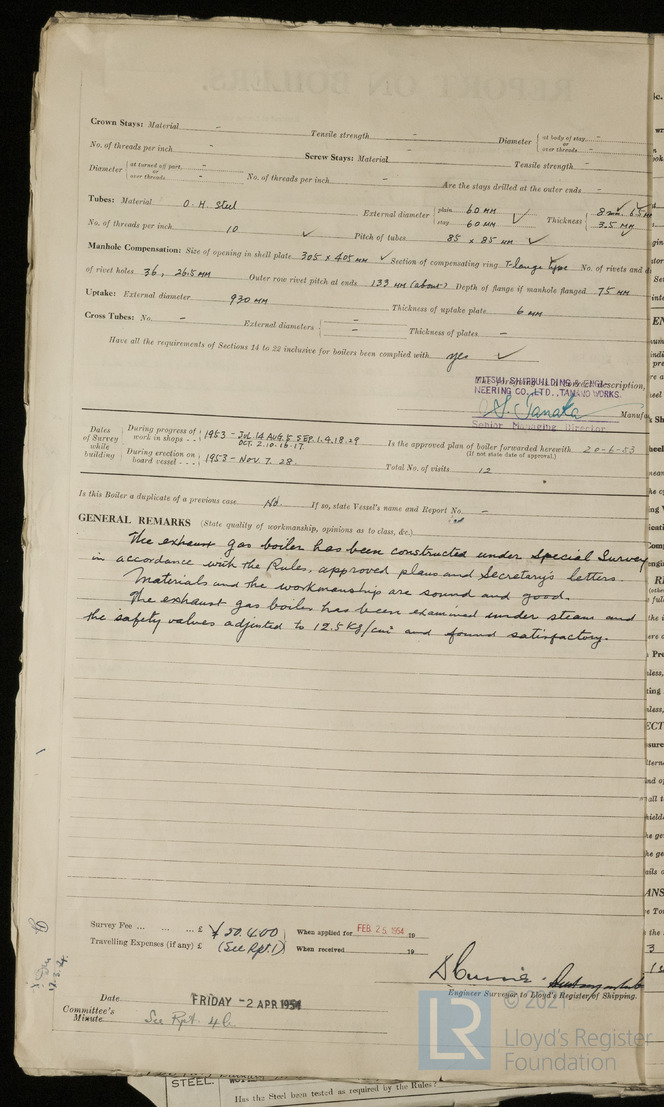 Crown Stays: Material - Tensile strength - Diameter { at body of stay, - or over threads -
No. of threads per inch - Screw Stays: Material - Tensile strength -
Diameter { at turned off part, - or over threads - No. of threads per inch - Are the stays drilled at the outer ends -
Tubes: Material O.H. Steel External diameter { plain 60 MM stay 60 MM Thickness { 3.5 MM
No. of threads per inch 10 Pitch of tubes 85 x 85 MM
Manhole Compensation: Size of opening in shell plate 305 x 405 MM Section of compensating ring No. of rivets and
of rivet holes 36, 26.5 MM Outer row rivet pitch at ends 133 MM (about) Depth of flange if manhole flanged 75 MM
Uptake: External diameter 930 MM Thickness of uptake plate 6 MM
Cross Tubes: No. - External diameters { - - Thickness of plates -
Have all the requirements of Sections 14 to 22 inclusive for boilers been complied with yes
description,
MITSUI SHIPBUILDING & ENGI-
NEERING CO., LTD., TAMANO WORKS.
S. Tanaka Manufa
Senior Managing Director
Dates of Survey while building { During progress of work in shops - - 1953 - Jul 14 AUG. 5 SEP. 1.9.18.29 OCT. 2.10.16.17. Is the approved plan of boiler forwarded herewith 20-6-53
(If not state date of approval.)
During erection on board vessel - - - 1953 - NOV. 7. 28. Total No. of visits 12
Is this Boiler a duplicate of a previous case No. If so, state Vessel's name and Report No. -
GENERAL REMARKS (State quality of workmanship, opinions as to class, &c.)
The exhaust gas boiler has been constructed under Special Survey
in accordance with the Rules, approved plans and Secretary's letters.
Materials and the workmanship are sound and good.
The exhaust gas boiler has been examined under steam and
the safety valves adjusted to 12.5 Kg/cm² and found satisfactory.
Survey Fee ... ... ... £ ¥ 50,400 When applied for FEB. 25 1954 19
Travelling Expenses (if any) £ (See Rpt 1) When received 19
Engineer Surveyor to Lloyd's Register of Shipping.
Date FRIDAY -2 APR 1954
Committee's Minute See Rpt. 4b.
© 2021
LR Lloyd's Register
Foundation
STEEL.
Has the Steel been tested as required by the Rules?